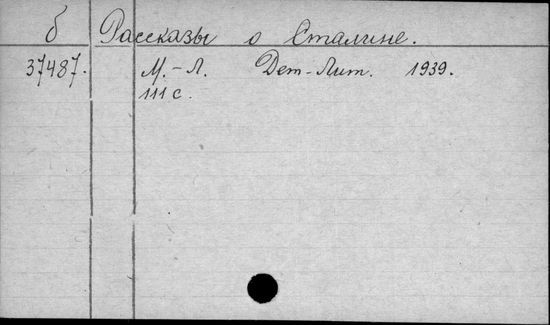 б Рассказы о Сталине.
37487. М.-Л. Дет-Лит. 1939.
111 с.